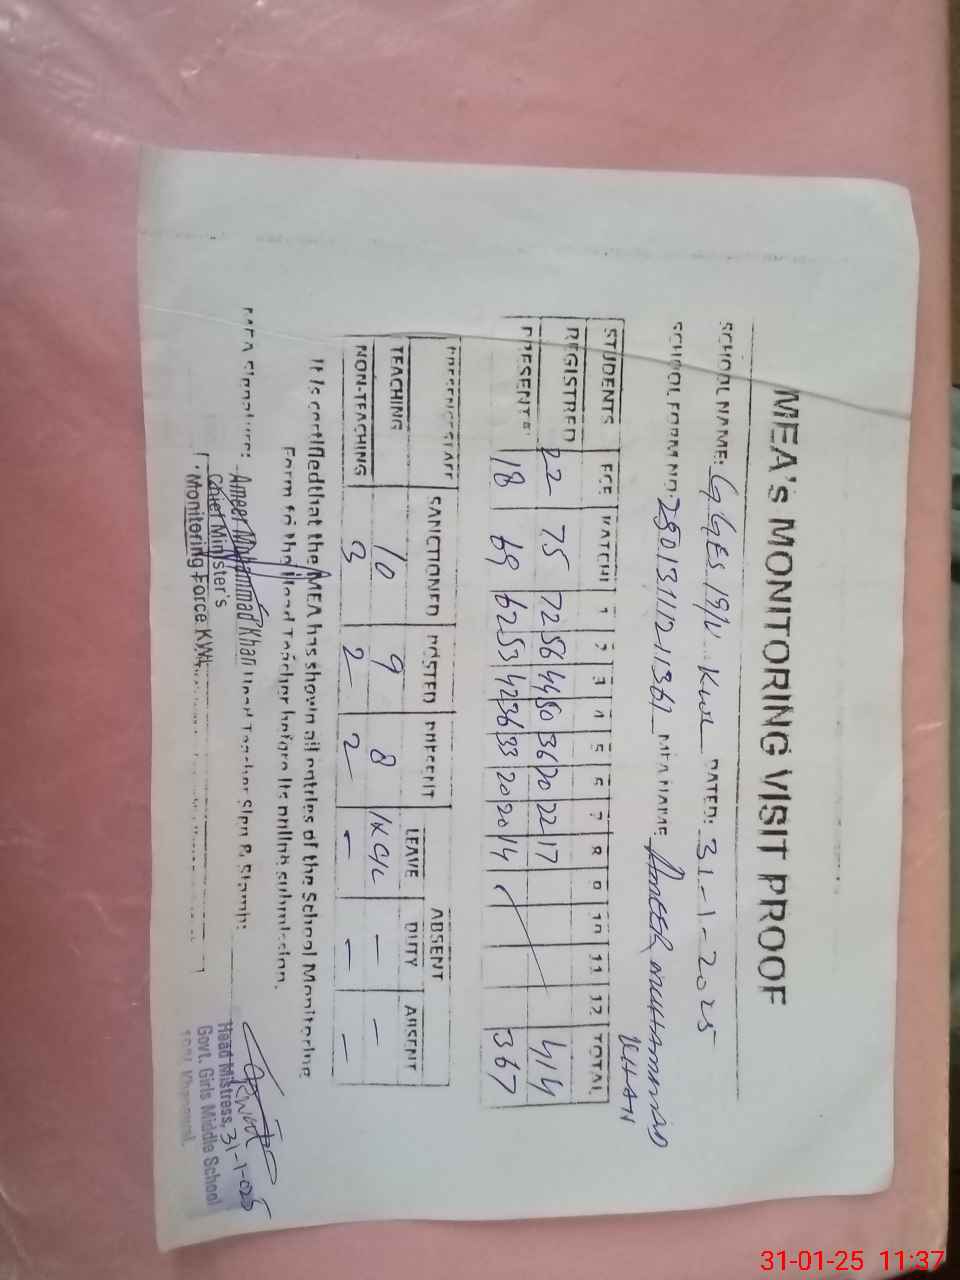 MEA's MONITORING VISIT PROOF
SCHOOL NAME: GGES 19/V Kwl DATED: 31-1-2025
SCHOOL FORM NO: MEA NAME: AMEER MUHAMMAD KHAN
STUDENTS ECE KATCHI 1 2 3 4 5 6 7 8 9 10 11 12 TOTAL
REGISTRED 22 75 72 56 44 50 36 20 22 17 414
PRESENTS 18 69 62 53 42 36 33 20 20 14 367
PRESENCE STAFF SANCTIONED POSTED PRESENT ABSENT
LEAVE DUTY ABSENT
TEACHING 10 9 8 - -
NON-TEACHING 3 2 2 - - -
It is certified that the MEA has shown all entries of the School Monitoring
Form to the Head Teacher before its online submission.
MEA Signature: Ameer Muhammad Khan Head Teacher Sign & Stamp:
Chief Minister's
Monitoring Force KWL
31-1-025
Head Mistress,
Govt. Girls Middle School
31-01-25 11:37